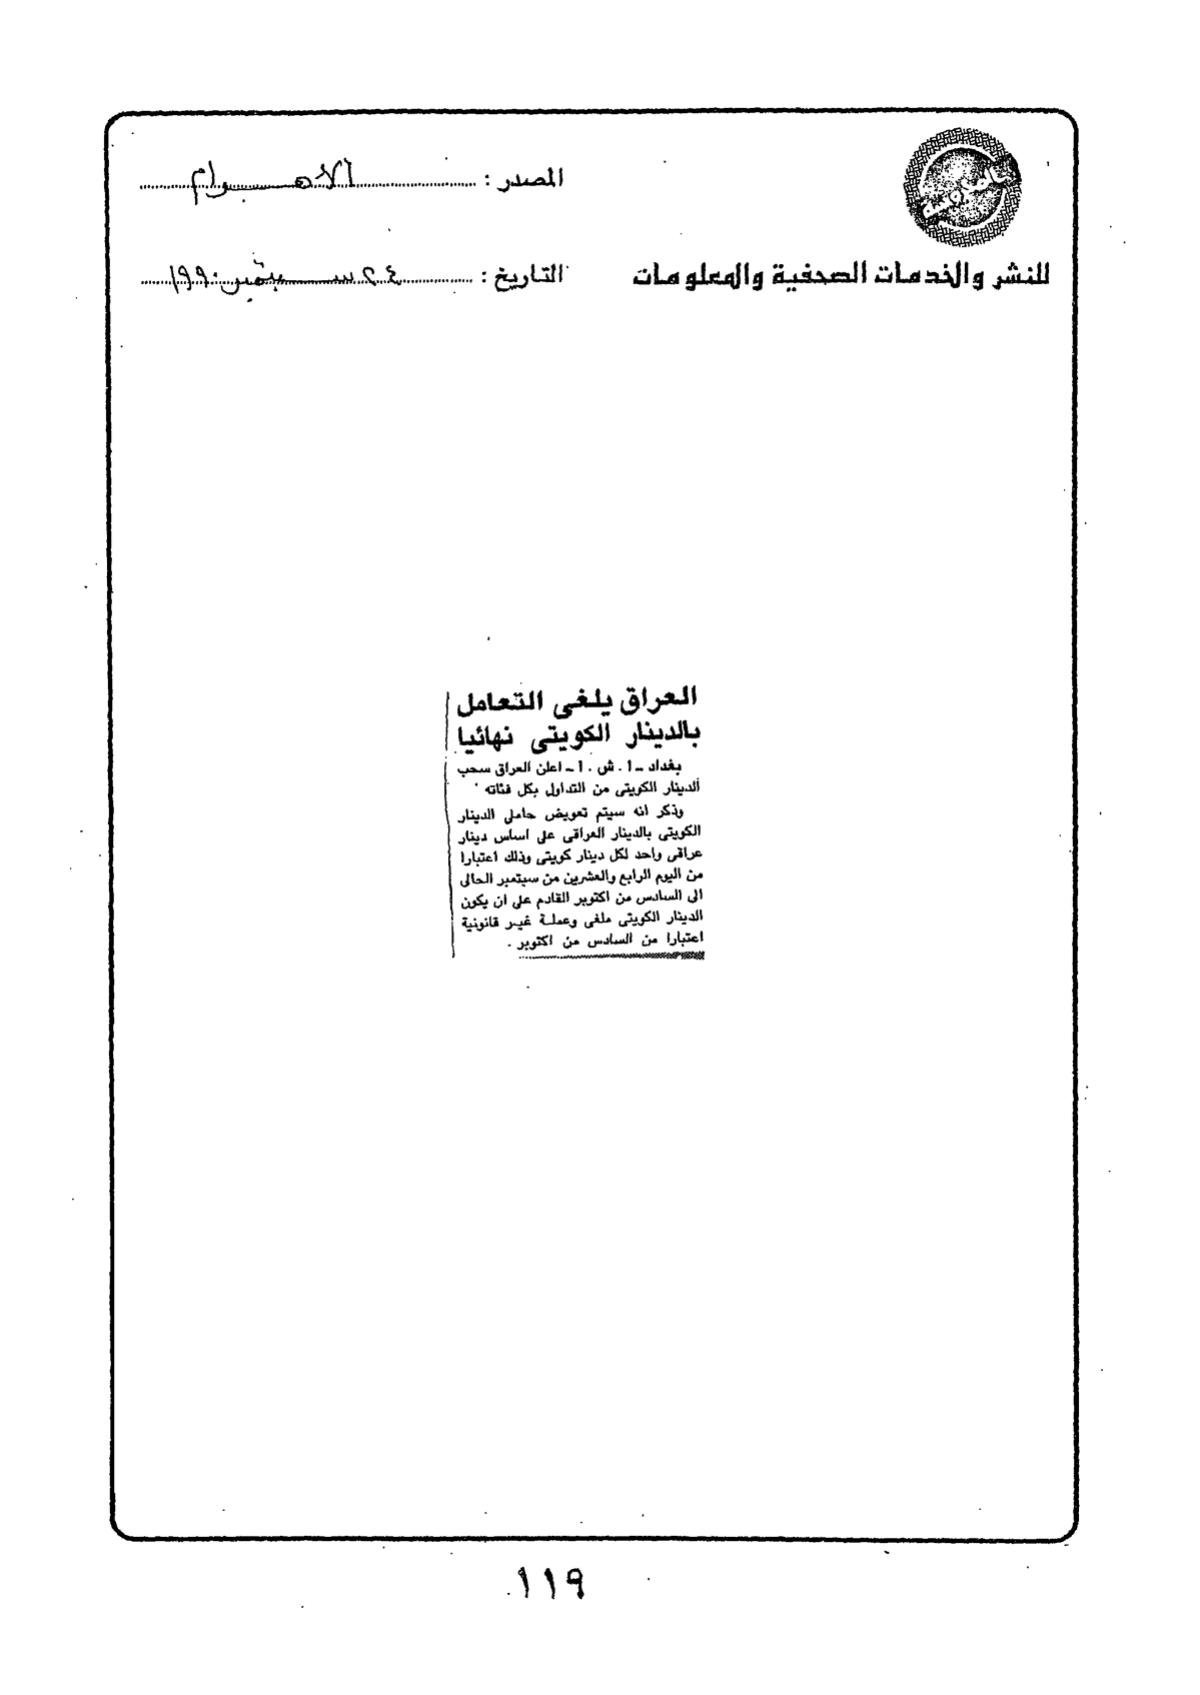 المصدر : الأهـــرام
للنشر والخدمات الصحفية والمعلومات
التاريخ : ٢٤ سبتمبر ١٩٩٠
العراق يلغى التعامل
بالدينار الكويتى نهائيا
بغداد ـ ا . ش . ا ـ اعلن العراق سحب
الدينار الكويتى من التداول بكل فئاته
وذكر انه سيتم تعويض حاملى الدينار
الكويتى بالدينار العراقى على اساس دينار
عراقى واحد لكل دينار كويتى وذلك اعتبارا
من اليوم الرابع والعشرين من سبتمبر الحالى
الى السادس من اكتوبر القادم على ان يكون
الدينار الكويتى ملغى وعملة غير قانونية
اعتبارا من السادس من اكتوبر .
١١٩